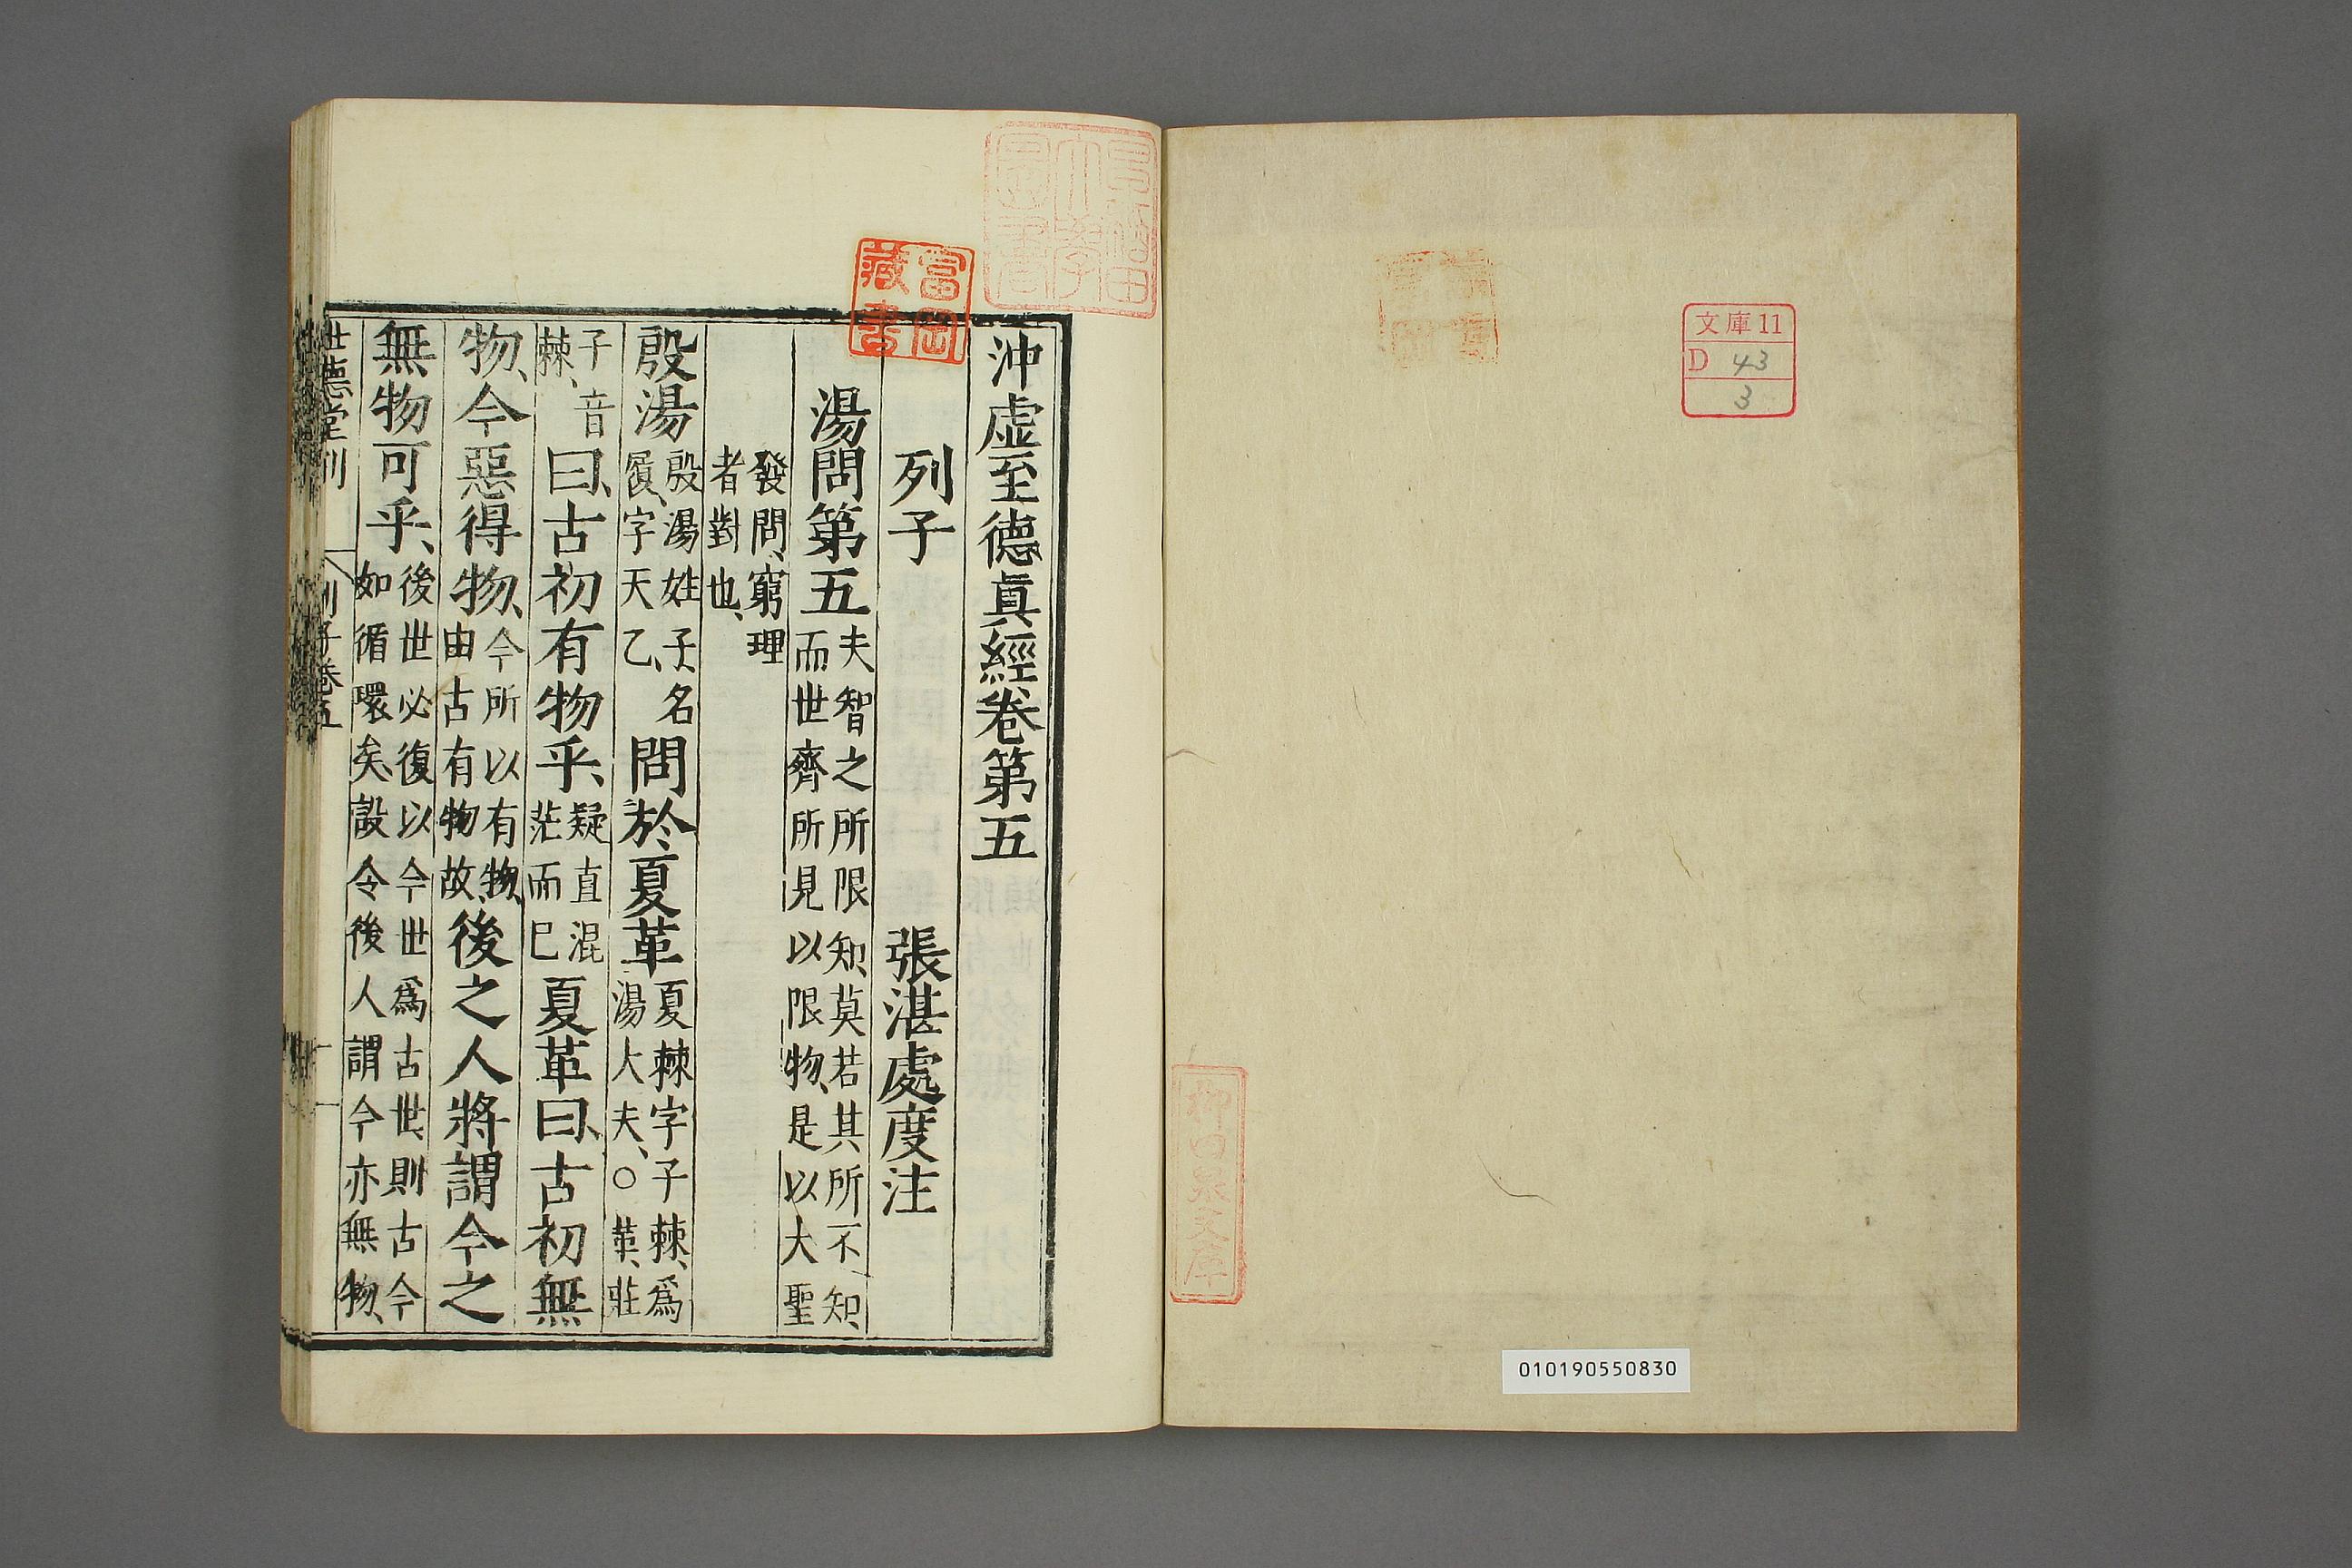 文庫11
D 43
3
柳田泉文庫
010190550830
早稲田大學圖書
富岡藏書
沖虛至德眞經卷第五
列子 張湛處度注
湯問第五 夫智之所限知、莫若其所不知、
而世齊所見以限物、是以大聖
發問、窮理
者對也、
殷湯 殷湯姓子、名
履、字天乙、 問於夏革 夏棘字子棘、爲
湯大夫、○革、莊
子音
棘、 曰、古初有物乎、 疑直混
茫而已 夏革曰、古初無
物、今惡得物、 今所以有物、
由古有物故、 後之人將謂今之
無物可乎、 後世必復以今世爲古世、則古今
如循環矣、設令後人謂今亦無物、
世德堂刊 列子卷五